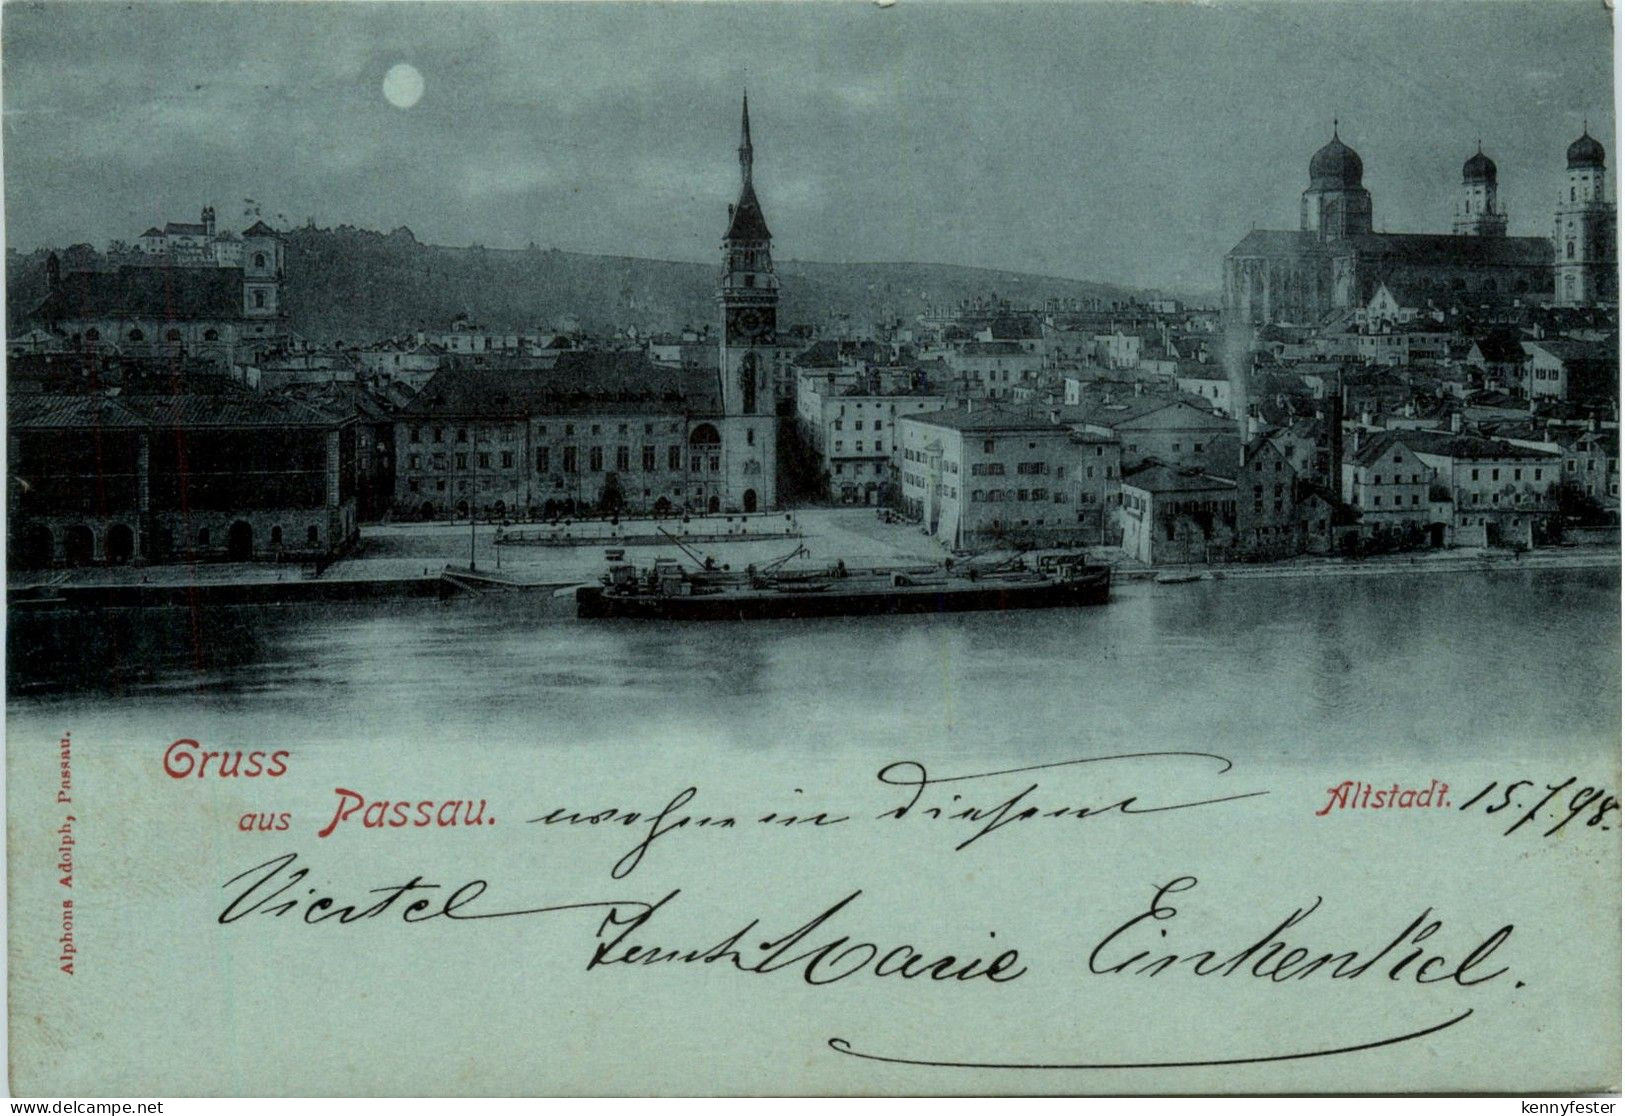 Gruss
aus Passau. wohne in diesem Altstadt. 15.7.98.
Viertel Marie Einkenkel.
Alphons Adolph, Passau.
www.delcampe.net
kennyfester